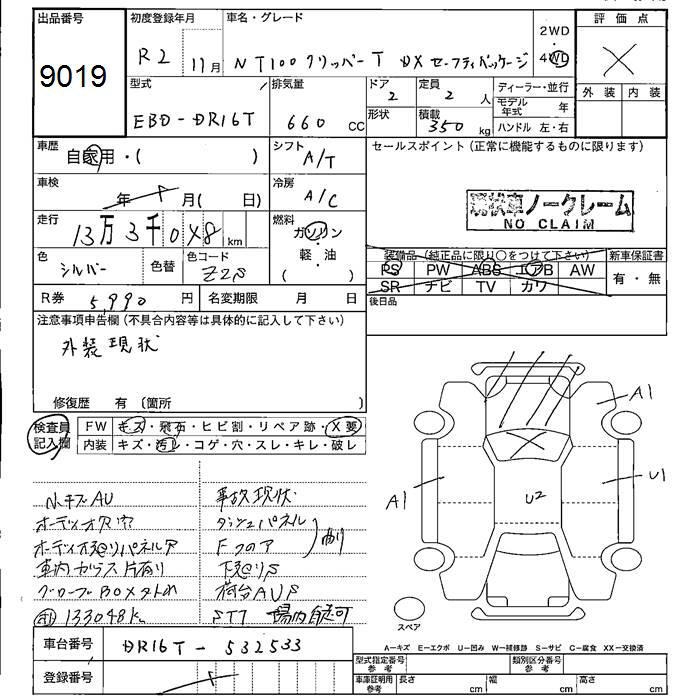 出品番号
9019
初度登録年月
R2 11月
車名・グレード
NT100 クリッパーT DX セーフティパッケージ
2WD
4WD
評価点
X
外装 内装
型式
EBD-DR16T
排気量
660 CC
ドア
2
形状
定員
2 人
積載
350 kg
ディーラー・並行
モデル年式 年
ハンドル 左・右
車歴
自家用・( )
シフト
A/T
セールスポイント (正常に機能するものに限ります)
車検
年 月( 日)
冷房
A/C
現状車ノークレーム
NO CLAIM
走行
13万3千048 km
燃料
ガソリン
軽・油
( )
装備品 (純正品に限り〇をつけて下さい)
PS PW ABS エアB AW
SR ナビ TV カワ
新車保証書
有・無
色
シルバー
色替
色コード
R券 5,990 円
名変期限 月 日
後日品
注意事項申告欄 (不具合内容等は具体的に記入して下さい)
外装現状
修復歴 有 (箇所 )
検査員記入欄
FW キズ・飛石・ヒビ割・リペア跡・X要
内装 キズ・汚れ・コゲ・穴・スレ・キレ・破レ
事故現状
オーディオ
Fフロア
曲り
車内ガラス片有り
グローブBOX
荷台AUS
133048k
場内自走可
A1
A1
U1
U2
スペア
A-キズ E-エクボ U-凹み W-補修跡 S-サビ C-腐食 XX-交換済
車台番号
DR16T-532533
登録番号
型式指定番号 参考
類別区分番号 参考
車庫証明用 参考
長さ cm
幅 cm
高さ cm